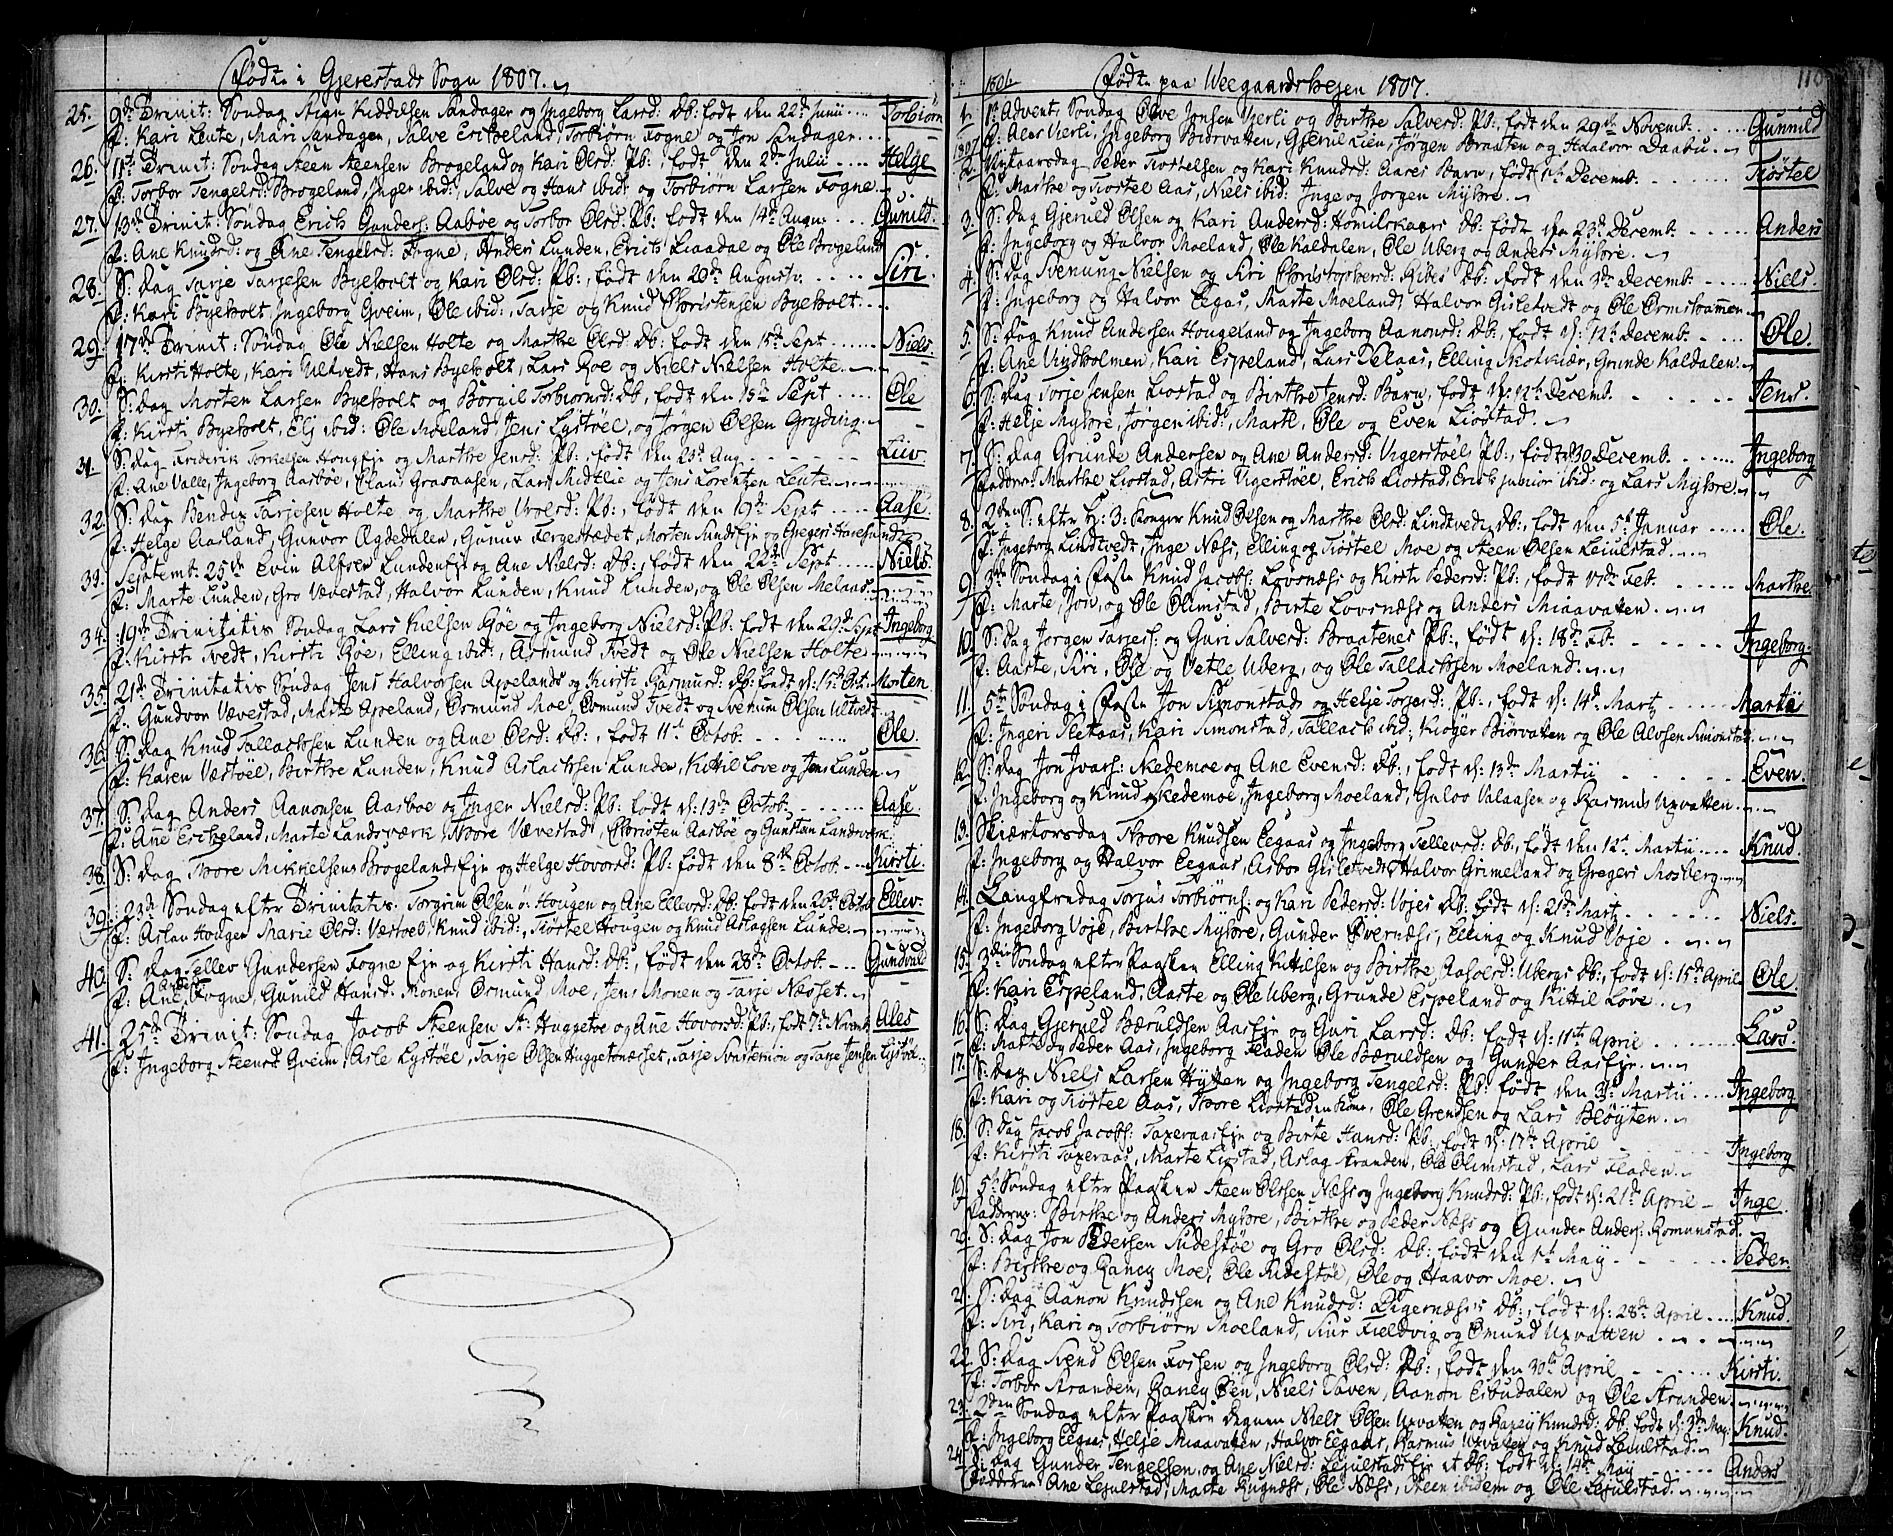 Fødte i Gjerestads Sogn 1807.
25. 9de Trinit: Søndag Stign Kiddelsen Sandager og Ingeborg Larsd: Db: født den 22de Junii .... Torbiørn
f: Kari Leute, Mari Sandagen, Salve Erikseland, Torbiørn Fogne og Jon Sandager
26. 11te Trinit: Søndag Steen Steensen Brogeland og Kari Olsd: Pb:, født den 2de Julii .... Helge
f: Torbor Tengelsd: Brogeland, Inger ibid:, Salve og Hans ibid: og Torbiørn Larsen Fogne
27. 13de Trinit: Søndag Erich Gunders: Aabøe og Torbor Olsd: Pb: født den 14de Aug: ... Gunild.
f: Ane Knudsd: og Ane Tengelsd: Fogne, Anders Lunden, Erich Liaadal og Ole Brogeland
28. S: Dag Tarje Tarjesen Byeholt og Kari Olsd: Pb:, født den 20de Augusti .... Siri.
f: Kari Byeholt, Ingeborg Gveim, Ole ibid:, Tarje og Knud Christensen Byeholt
29. 17de Trinit: Søndag Ole Nielsen Holte og Marthe Olsd: Db: født den 15de Sept .... Niels.
f: Kirsti Holte, Kari Ultvedt, Hans Byeholt, Lars Roe og Niels Nielsen Holte
30. S: Dag Morten Larsen Byeholt og Borgil Torbiørnsd: Db:, født den 15de Sept .... Ole
f: Kirsti Byeholt, Elj ibid: Ole Moeland, Jens Lystøel, og Jørgen Olsen Gryding
31. S: Dag Friderik Torkelsen Hougejn og Marthe Jensd: Pb:, født den 29de Aug .... Liiv
f: Ane Valle, Ingeborg Aasbøe, Claus Graaaasen, Lars Midtlie og Jens Lorentzen Leute
32. S: Dag Bendix Tarjesen Holte og Marthe Olsd: Pb:, født den 19de Sept .... Aase
f: Helge Aasland, Gunvor Ogdedalen, Gunuv Fergestædet, Morten Sundsejn og Gregers Haresund
33. Septemb: 25de Evin Alfsen Lundenejn og Ane Nielsd: Db:, født den 22de Sept .... Niels.
f: Marte Lunden, Gro Vævestad, Halvor Lunden, Knud Lunden, og Ole Olsen Melaas
34. 19de Trinitatis Søndag Lars Nielsen Roe og Ingeborg Nielsd: Pb: født den 29de Sept Ingeborg
f: Kirsti Tvedt, Kirsti Roe, Elling ibid:, Asmund Tvedt og Ole Nielsen Holte
35. 21de Trinitatis Søndag Jens Halvorsen Apelands og Kirsti Rasmusd: Db: født d: 15de Oct: Morten
f: Gundvor Vævestad, Marte Apeland, Ormund Moe, Osmund Tvedt og Svenum Olsen Ultvedt
36. S: Dag Knud Tallachsen Lunden og Ane Olsd: Db:, født 11te Octob. .... Ole.
f: Karen Væstøel, Birthe Lunden, Knud Aslachsen Lunden, Kittil Love og Jens Lunden
37. S: Dag Anders Aanonsen Aasbøe og Inger Nielsd: Pb: født d: 13de Octob .... Aase.
f: Ane Erikseland, Marte Landsværk, Thore Vævestad, Christen Aasbøe og Gunstein Landsværk
38. S: Dag Thore Mikkelsen Brogelands Ejn og Helge Hovorsd: Pb: født den 8de Octob .... Kirsti.
39. 23de Søndag efter Trinitatis: Torgrim Olsen ø: Hougen og Ane Ellevsd: Db: født den 26de Octob Ellev.
f: Aslau Hougen, Marie Olsd: Væstøel, Knud ibid:, Tiøstel Hougen og Knud Aslagsen Lunde
40. S: Dag Ellev Gundersen Fogne Ejn og Kirsti Hansd: Db:, født den 28de Octob .... Gundvuld
f: Ane Fogne, Gunild Hansd: Monen, Ormund Moe, Jens Monen og Tarje Næsset
41. 25de Trinit: Søndag Jacob Steensen St: Huggetoe og Ane Hovorsd: Pb:, født 7de Novemb Ales
f: Ingeborg Steensd: Gveim, Asle Lystøel, Tarje Olsen Huggetonæsset, Tarje og Tarje Jensen Lystøl
1806. Fødte paa Weegaardsheien 1807. 110
1. 1ste Advent Søndag Olve Jensen Vierli og Birthe Salvesd: Pb:, født den 29de Novemb .... Gunnild
f: Ales Vierli, Ingeborg Biorvatten, Gjerul Lien, Jørgen Braaten og Haalvor Daabu
1807
2. Nytaarsdag Peder Tiostelsen og Kari Knudsd: Aases Barn, født 1ste Decemb. .... Tiøstel
f: Marthe og Tiostel Aas, Niels ibid: Inge og Jørgen Myhre
3. S: Dag Gjeruld Olsen og Kari Andersd: Homilskaars Db: født den 23de Decemb. .... Anders
f: Ingeborg og Halvor Moeland, Ole Kaldalen, Ole Uberg og Anders Myhre
4. S: Dag Svenung Nielsen og Siri Christophersd: Ribes Db: født den 3de Decemb .... Niels.
f: Ingeborg og Halvor Eegaas, Marte Moeland, Halvor Gisletvedt og Ole Ormstvannen
5. S: Dag Knud Andersen Hougeland og Ingeborg Aanonsd: Db:, født d: 12te Decemb. .... Ole.
f: Ane Nydholmen, Kari Espeland, Lars Selaas, Elling Skotkiær, Grunde Kaldalen
6. S: Dag Torje Jensen Liostad og Birthe Jensd: Barn, født d: 12te Decemb. .... Jens.
f: Helje Myhre, Jørgen ibid:, Marte, Ole og Even Liostad
7. S: Dag Grunde Andersen og Ane Andersd: Vigerstøel Pb:, født d: 30 Decemb. .... Ingeborg
Faddere: Marthe Liostad, Astri Vigerstøel, Erich Liostad, Erich junior ibid: og Lars Myhre
8. 2den S: efter H: 3: Konger Knud Olsen og Marthe Olsd: Lindtvedt Db:, født den 5te Januar .... Ole.
f: Ingeborg Lindtvedt, Inge Næss, Elling og Tiøstel Moe og Steen Olsen Leiulstad
9. 3de Søndag i Faste Knud Jacobs: Lovsnæss og Kirsti Pedersd: Pb:, født 17de Feb. .... Marthe
f: Marte, Jon, og Ole Olimstad, Birte Lovsnæs og Anders Miaavatten
10. S: Dag Jørgen Tarjes: og Guri Salvesd: Braatenes Pb:, født d: 18de Feb. .... Ingeborg.
f: Aaste, Siri, Ole og Vetle Uberg, og Ole Tallachsen Moeland
11. 5te Søndag i Faste Jon Simonstads og Helje Torjesd: Pb:, født d: 14de Martz .... Marte
f: Ingeri Sletaas, Kari Simonstad, Tallach ibid:, Roger Biorvatten og Ole Alvsen Simonstad
12. S: Dag Jon Ivars: Skedsmoe og Ane Evensd: Db:, født d: 13de Martii .... Even.
f: Ingeborg og Knud Skedemoe, Ingeborg Moeland, Gulov Valaasen og Rasmus Uxvatten
13. Skiærtorsdag Thore Knudsen Eegaas og Ingeborg Tellevsd: Db:, født den 12te Martii .... Knud.
f: Ingeborg og Halvor Eegaas, Asbor Gisletvedt, Halvor Grimeland og Gregers Mosberg
14. Langfredag Torjus Torbiørns: og Kari Pedersd: Vojes Db: født d: 21de Martz .... Niels.
f: Ingeborg Voje, Birthe Myhre, Gunder Overnæss, Elling og Knud Voje
15. 3die Søndag efter Paasken Elling Kittilsen og Birthe Aasolsd: Ubergs Db:, født d: 15de April Ole.
f: Kari Espeland, Aaste og Ole Uberg, Grunde Espeland og Kittil Løve
16. S: Dag Gjeruld Bæruldsen Aas Ejn og Guri Larsd: Db: født d: 11te April .... Lars.
f: Marte og Peder Aas, Ingeborg Fladen, Ole Bæruldsen og Gunder Aas Ejn
17. S: Dag Niels Larsen Hytten og Ingeborg Tengelsd: Pb: født den 31te Martii .... Ingeborg
f: Kari og Tiøstel Aas, Thore Liostads Kone, Ole Grendsen og Lars Bløyten
18. S: Dag Jacob Jacobs: Taxeraas Ejn og Birte Hansd: Pb: født d: 17de April .... Ingeborg
f: Kirsti Taxeraas, Marte Liostad, Aslag Stranden, Ole Olimstad, Lars Fladen
19. 5te Søndag efter Paasken Steen Olsen Næss og Ingeborg Knudsd: Pb:, født d: 21de April Inge
Faddere: Birthe og Anders Myhre, Birthe og Peder Næss og Gunder Anders: Romundstad
20. S: Dag Jon Pedersen Sidestøe og Gro Olsd: Db: født den 1te May .... Peder.
f: Birthe og Rancy Moe, Ole Sidestøe, Ole og Haavor Moe
21. S: Dag Aanon Knudsen og Ane Knudsd: Digernæss Db:, født d: 28de April .... Knud
f: Siri, Kari og Torbiørn Moeland, Siur Fieldvig og Omund Uxvatten
22. S: Dag Svend Olsen Fossen og Ingeborg Olsd: Pb:, født den 30te April .... Kirsti.
f: Torbor Stranden, Rancy Øen, Niels Saven, Aanon Esbudalen og Ole Stranden
23. 2den Søndag efter Paaske Degnen Niels Olsen Uxvatten, og Rancy Knudsd: Db: født d: 3de May: Knud.
f: Ingeborg Eegaas, Helje Miaavatten, Halvor Eegaas, Rasmus Uxvatten og Knud Leiulstad
24. S: Dag Gunder Tengelsen, og Ane Nielsd: Leiulstads Ejn et Db: født d: 14de May .... Anders
Faddere: Ane Leiulstad, Marte Rugnæss, Ole Næss, Steen ibidem og Ole Leiulstad